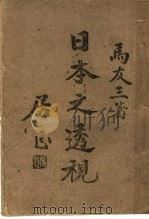 馬友三著
日本之透視
居正